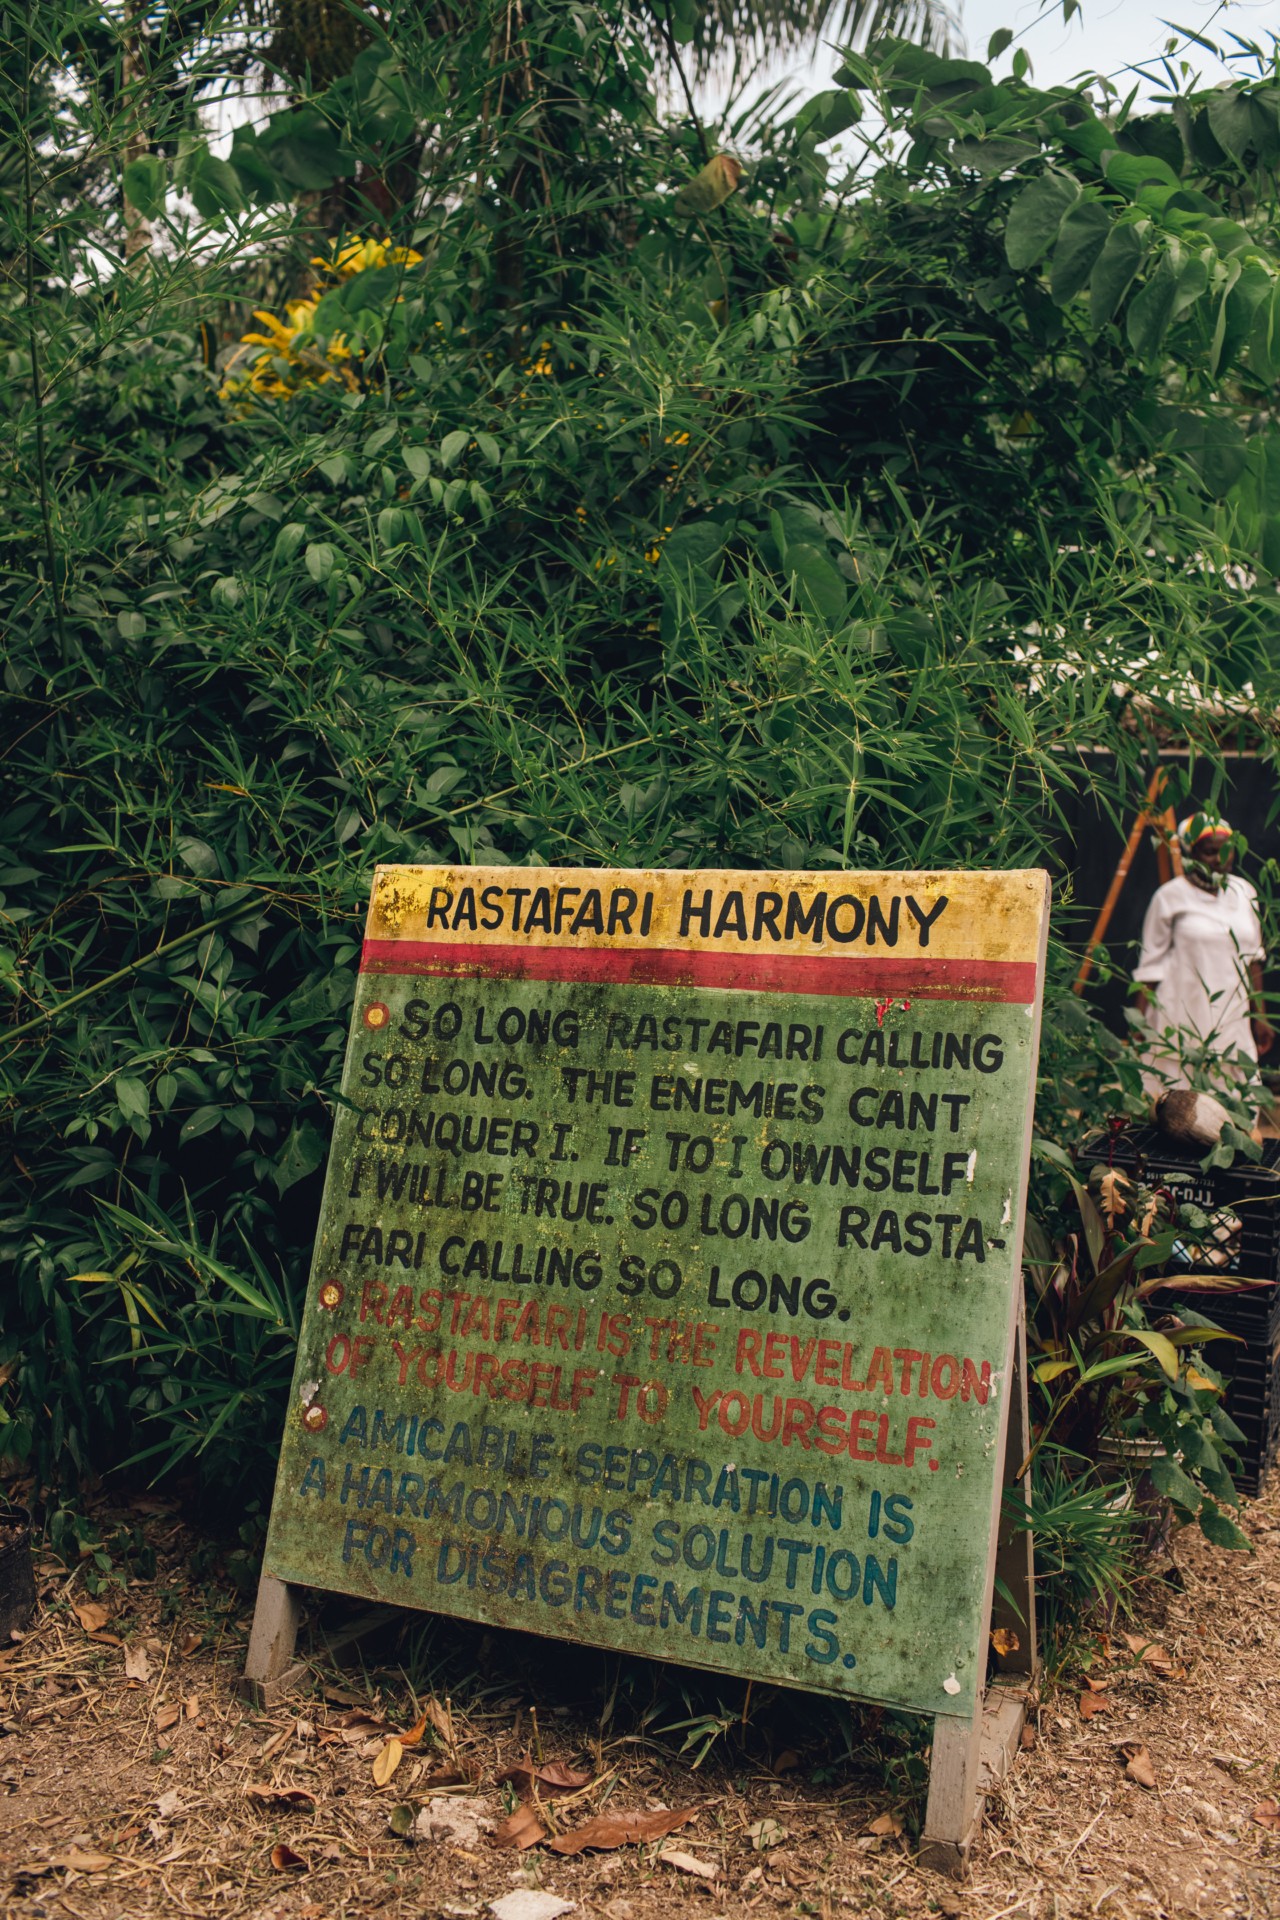 RASTAFARI HARMONY
SO LONG RASTAFARI CALLING
SO LONG. THE ENEMIES CANT
CONQUER I. IF TO I OWNSELF
I WILL BE TRUE. SO LONG RASTA-
FARI CALLING SO LONG.
RASTAFARI IS THE REVELATION
OF YOURSELF TO YOURSELF.
AMICABLE SEPARATION IS
A HARMONIOUS SOLUTION
FOR DISAGREEMENTS.
Tru-J